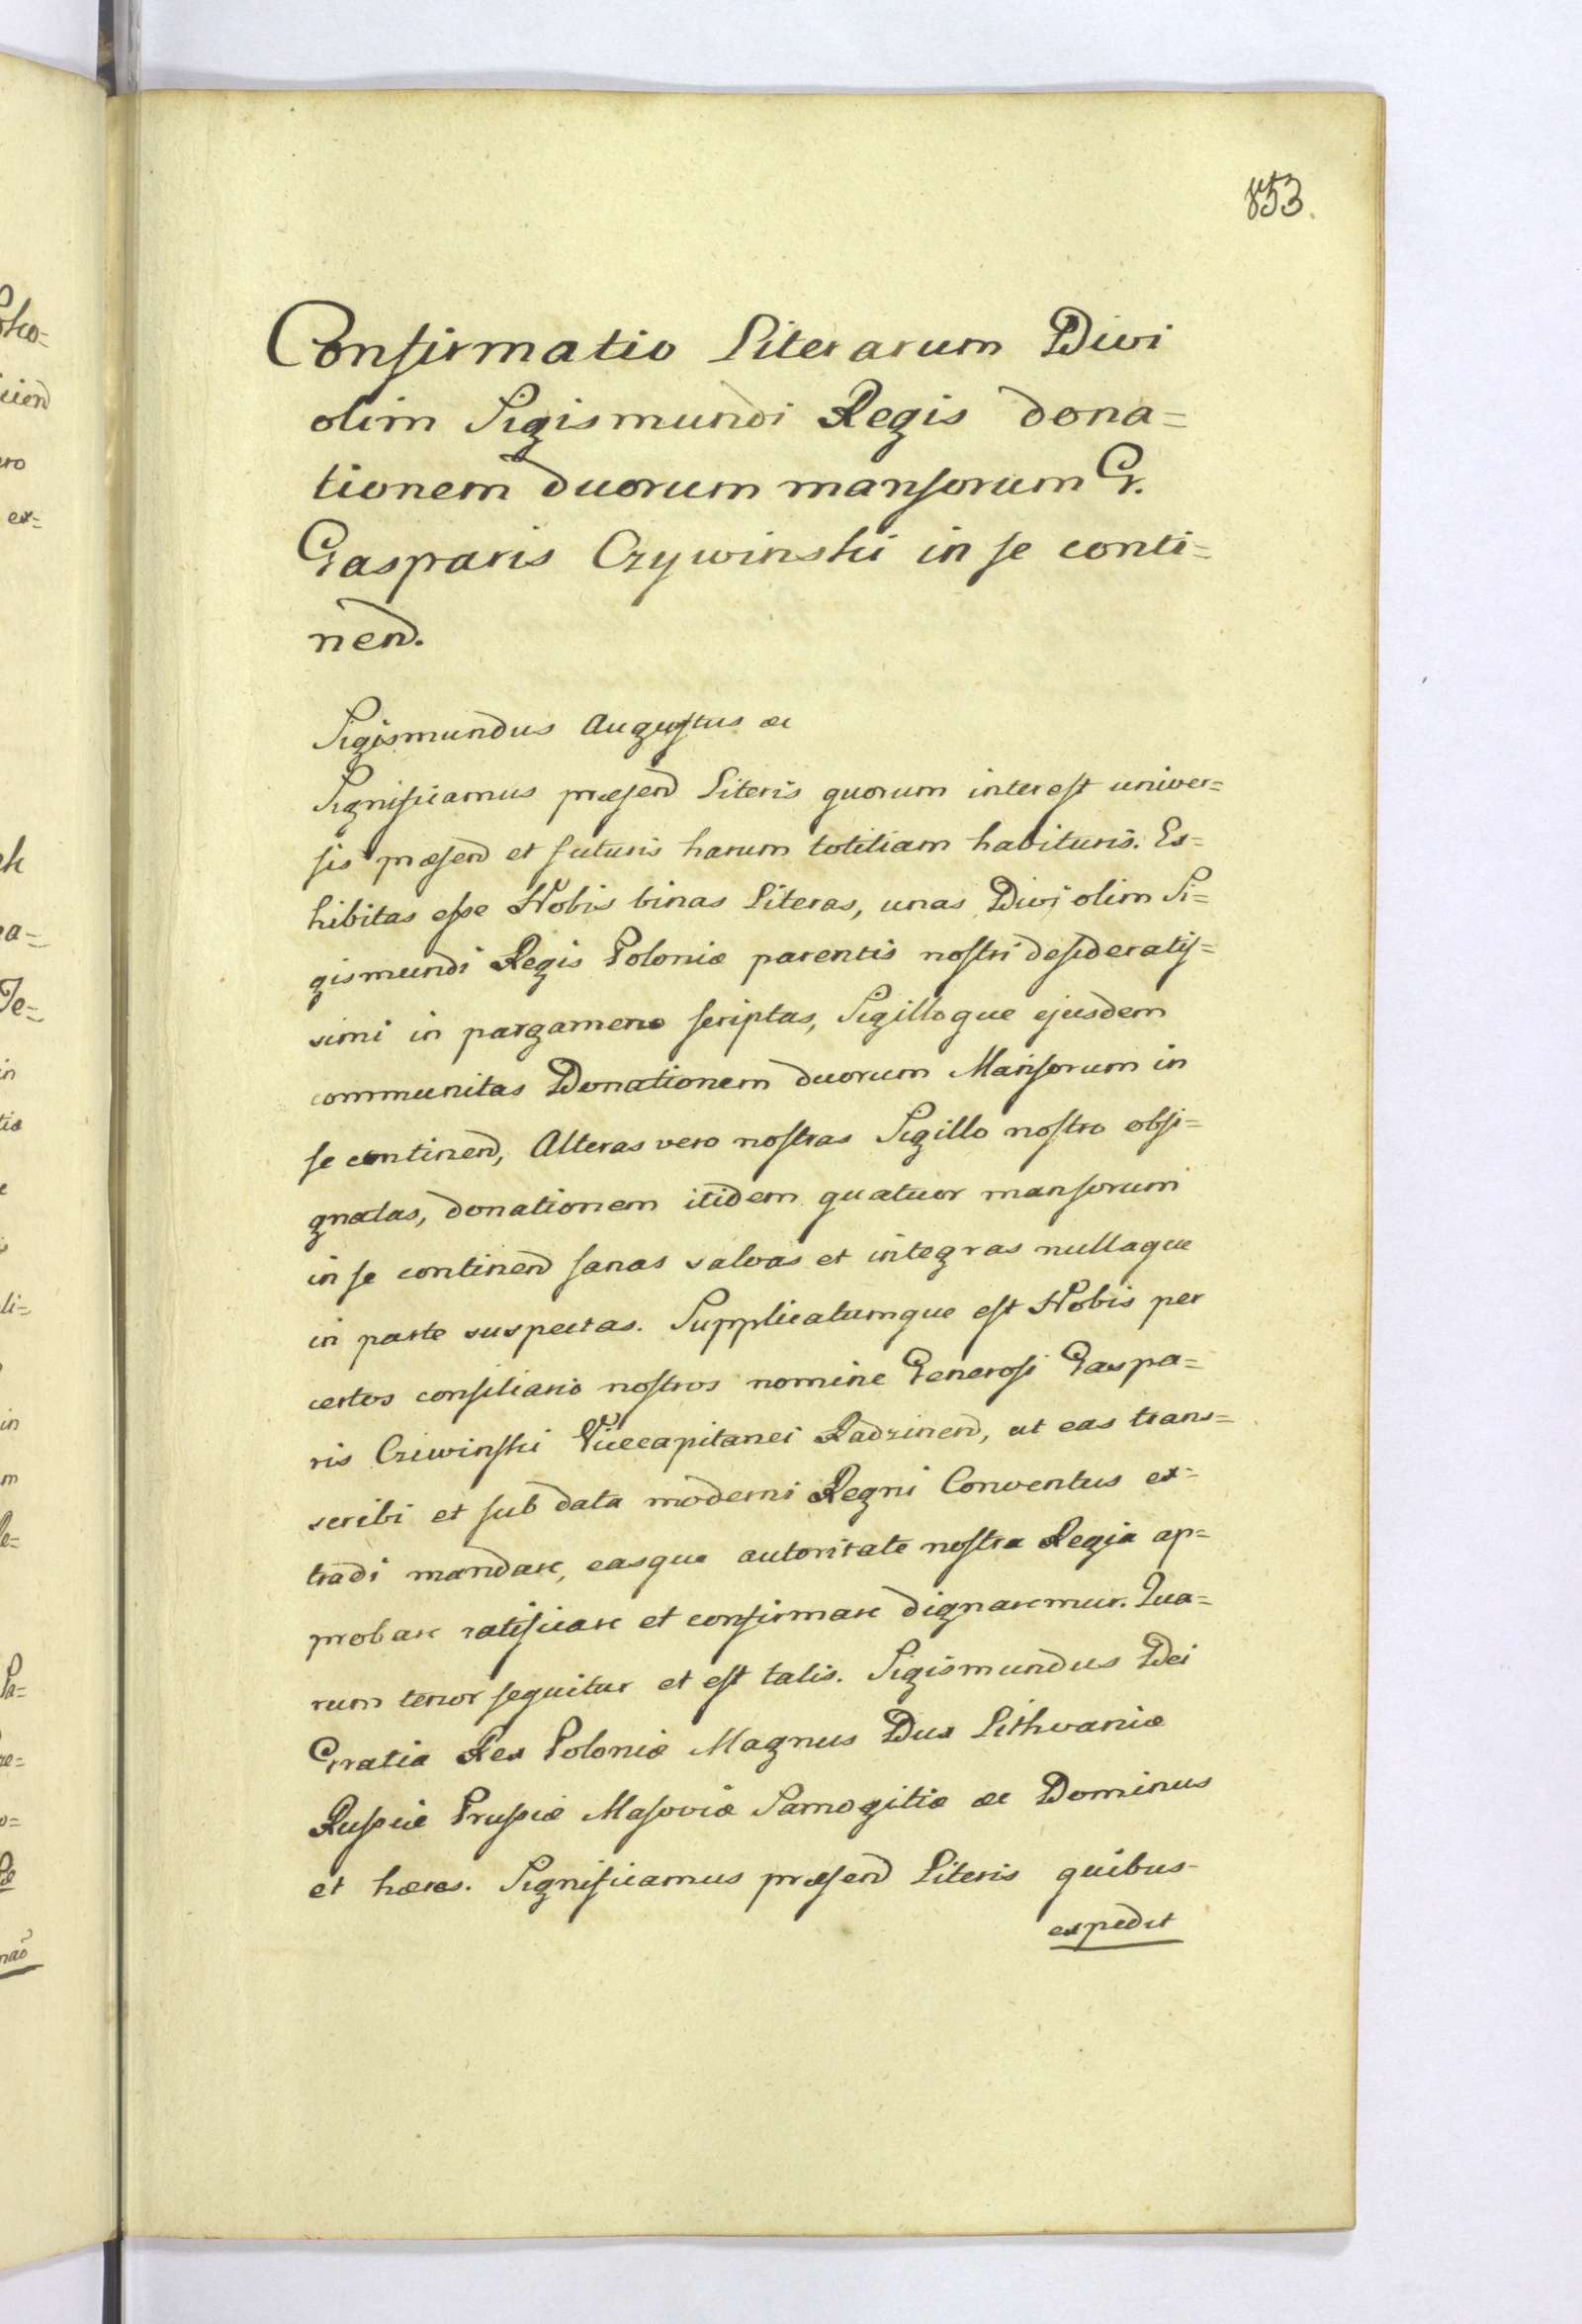 853.
Confirmatio Literarum Divi
olim Sigismundi Regis dona=
tionem duorum mansorum G.
Gasparis Czywinski in se conti=
nend.
Sigismundus Augustus &c
Significamus præsend Literis quorum interest univer=
sis præsend et futuris harum totitiam habituris. Ex=
hibitas esse Nobis binas Literas, unas Divi olim Si=
gismundi Regis Poloniæ parentis nostri desideratis=
simi in pargameno scriptas, Sigilloque ejusdem
communitas Donationem duorum Mansorum in
se continend, Alteras vero nostras Sigillo nostro obsi=
gnatas, donationem itidem quatuor mansorum
in se continend sanas salvas et integras nullaque
in parte suspectas. Supplicatumque est Nobis per
certos consiliario nostros nomine Generosi Gaspa=
ris Cziwinski Vicecapitanei Radzinend, ut eas trans=
scribi et sub data moderni Regni Conventus ex=
tradi mandare, easque autoritate nostra Regia ap=
probare ratificare et confirmare dignaremur. Qua=
rum tenor sequitur et est talis. Sigismundus Dei
Gratia Rex Poloniæ Magnus Dux Lithvaniæ
Russiæ Prussiæ Masoviæ Samogitiæ &c Dominus
et hæres. Significamus præsend Literis quibus
expedit